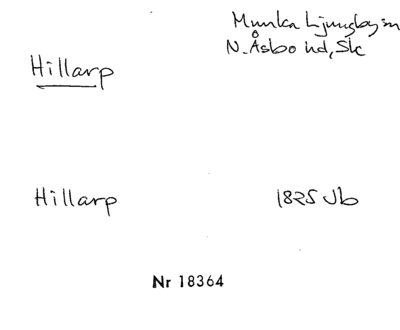 Munka Ljungby sn
N. Åsbo hd, Sk
Hillarp
Hillarp 1825 Jb
Nr 18364